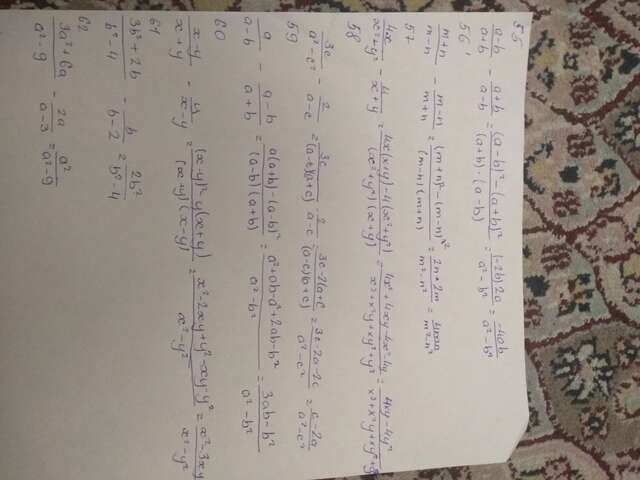 55
56
\frac{a-b}{a+b} - \frac{a+b}{a-b} = \frac{(a-b)^2-(a+b)^2}{(a+b)·(a-b)} = \frac{(-2b)2a}{a^2-b^2} = \frac{-4ab}{a^2-b^2}
\frac{m+n}{m-n} - \frac{m-n}{m+n} = \frac{(m+n)^2-(m-n)^2}{(m-n)(m+n)} = \frac{2n+2m}{m^2-n^2} = \frac{4mn}{m^2-n^2}
57
\frac{4x}{x^2+y^2} - \frac{4}{x+y} = \frac{4x(x+y)-4(x^2+y^2)}{(x^2+y^2)(x+y)} = \frac{4x^2+4xy-4x^2-4y}{x^3+x^2y+xy^2+y^2} = \frac{4xy-4y^2}{x^3+x^2y+xy^2+y^3}
58
\frac{3c}{a^2-c^2} - \frac{2}{a-c} = \frac{3c}{(a-c)(a+c)} - \frac{2}{a-c} = \frac{3c-2(a+c)}{(a-c)(a+c)} = \frac{3c-2a-2c}{a^2-c^2} = \frac{c-2a}{a^2-c^2}
59
\frac{a}{a-b} - \frac{a-b}{a+b} = \frac{a(a+b)-(a-b)^2}{(a-b)(a+b)} = \frac{a^2+ab-a^2+2ab-b^2}{a^2-b^2} = \frac{3ab-b^2}{a^2-b^2}
60
\frac{x-y}{x+y} - \frac{y}{x-y} = \frac{(x-y)^2-y(x+y)}{(x-y)(x-y)} = \frac{x^2-2xy+y^2-xy-y^2}{x^2-y^2} = \frac{x^2-3xy}{x^2-y^2}
61
\frac{3b^2+2b}{b^2-4} - \frac{b}{b-2} = \frac{2b^2}{b^2-4}
62
\frac{3a^2+6a}{a^2-9} - \frac{2a}{a-3} = \frac{a^2}{a^2-9}